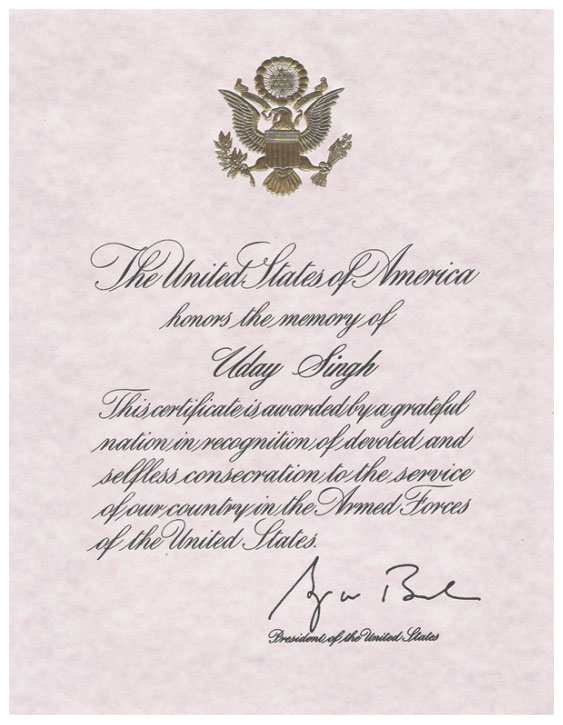 The United States of America
honors the memory of
Uday Singh
This certificate is awarded by a grateful
nation in recognition of devoted and
selfless consecration to the service
of our country in the Armed Forces
of the United States.
President of the United States